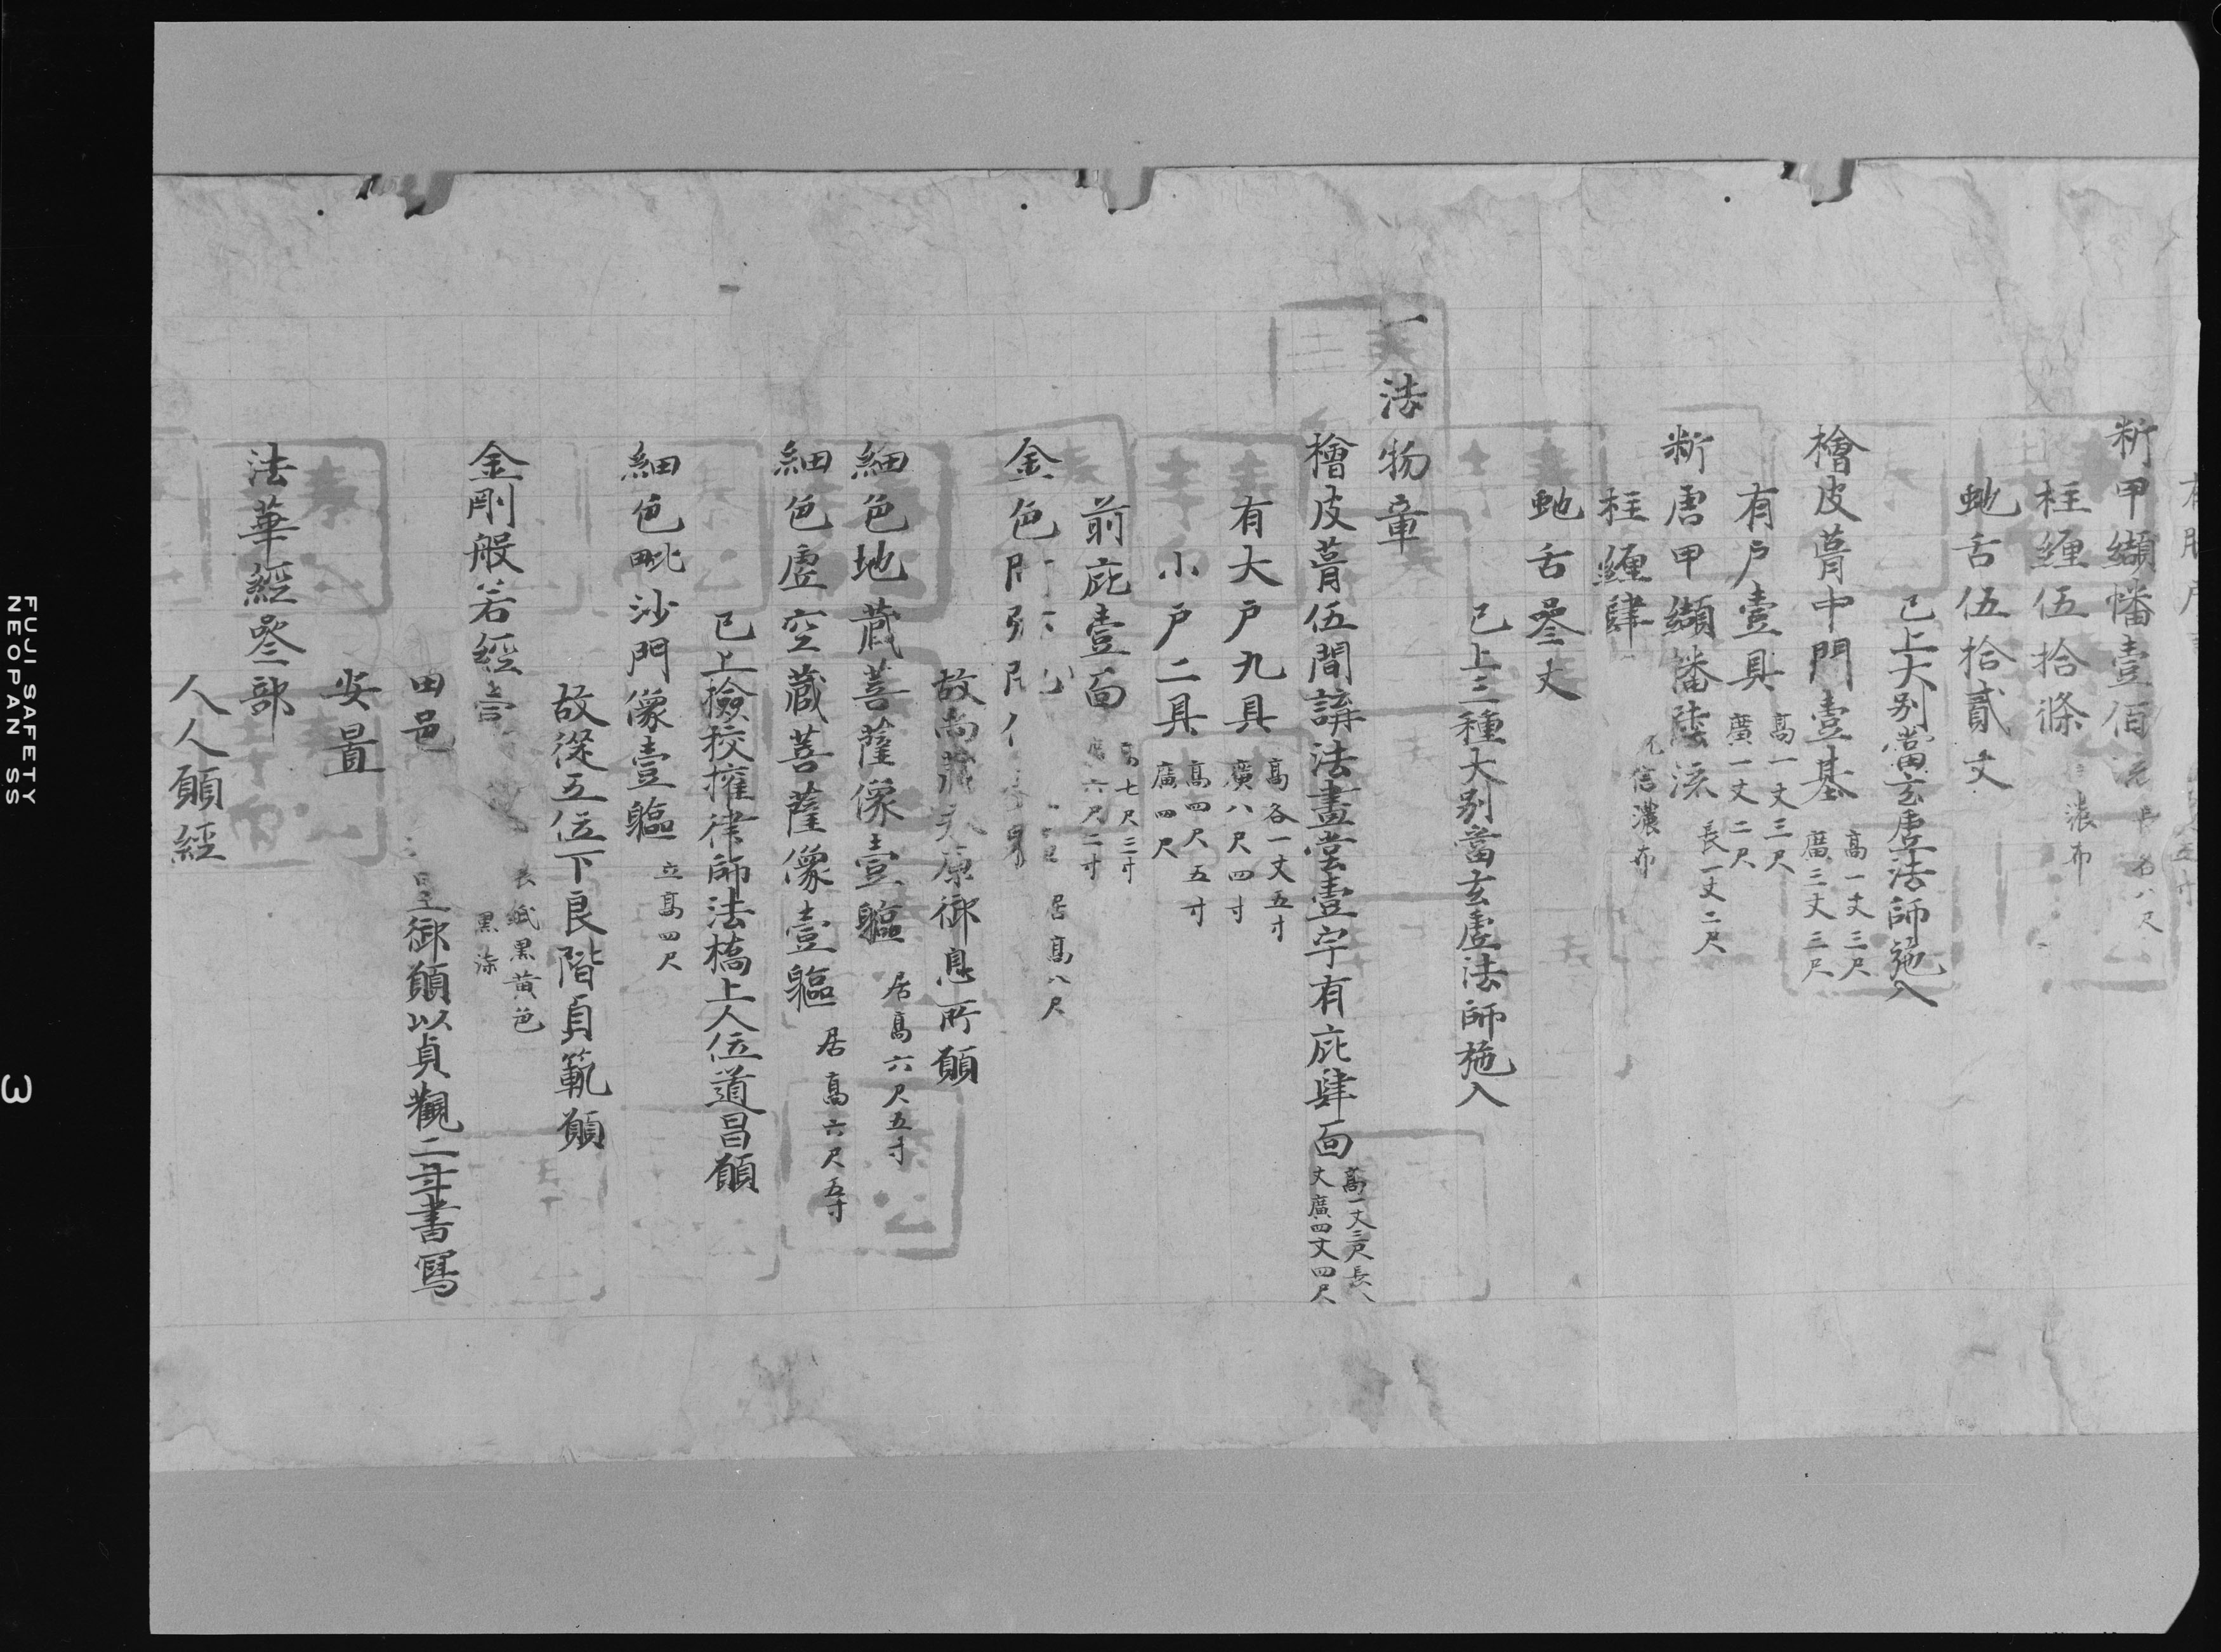 新甲纈幡壹佰
長各八尺
柱纏伍拾條
濃布
虵舌伍拾貳丈
已上大別當玄虚法師施入
檜皮葺中門壹基
高一丈三尺
廣三丈三尺
有戸壹具
高一丈三尺
廣一丈二尺
新唐甲纈幡陸流
長一丈二尺
柱纏肆
信濃布
虵舌叄丈
已上三種大別當玄虚法師施入
一法物章
檜皮葺伍間講法畫堂壹宇有庇肆面
高一丈三尺長八
丈廣四丈四尺
有大戸九具
高各一丈五寸
廣八尺四寸
小戸二具
高四尺五寸
廣四尺
前庇壹面
七尺三寸
六尺二寸
金色
居高八尺
故尚
原御息所願
細色地蔵菩薩像壹軀
居高六尺五寸
細色虚空蔵菩薩像壹軀
居高六尺五寸
已上檢校權律師法橋上人位道昌願
細色毗沙門像壹軀
立高四尺
故從五位下良階貞範願
金剛般若經壹
表紙黒黄色
黒漆
田邑
御願以貞觀二年書寫
安置
法華經叄部
人人願經
FUJI SAFETY
NEOPAN SS
3